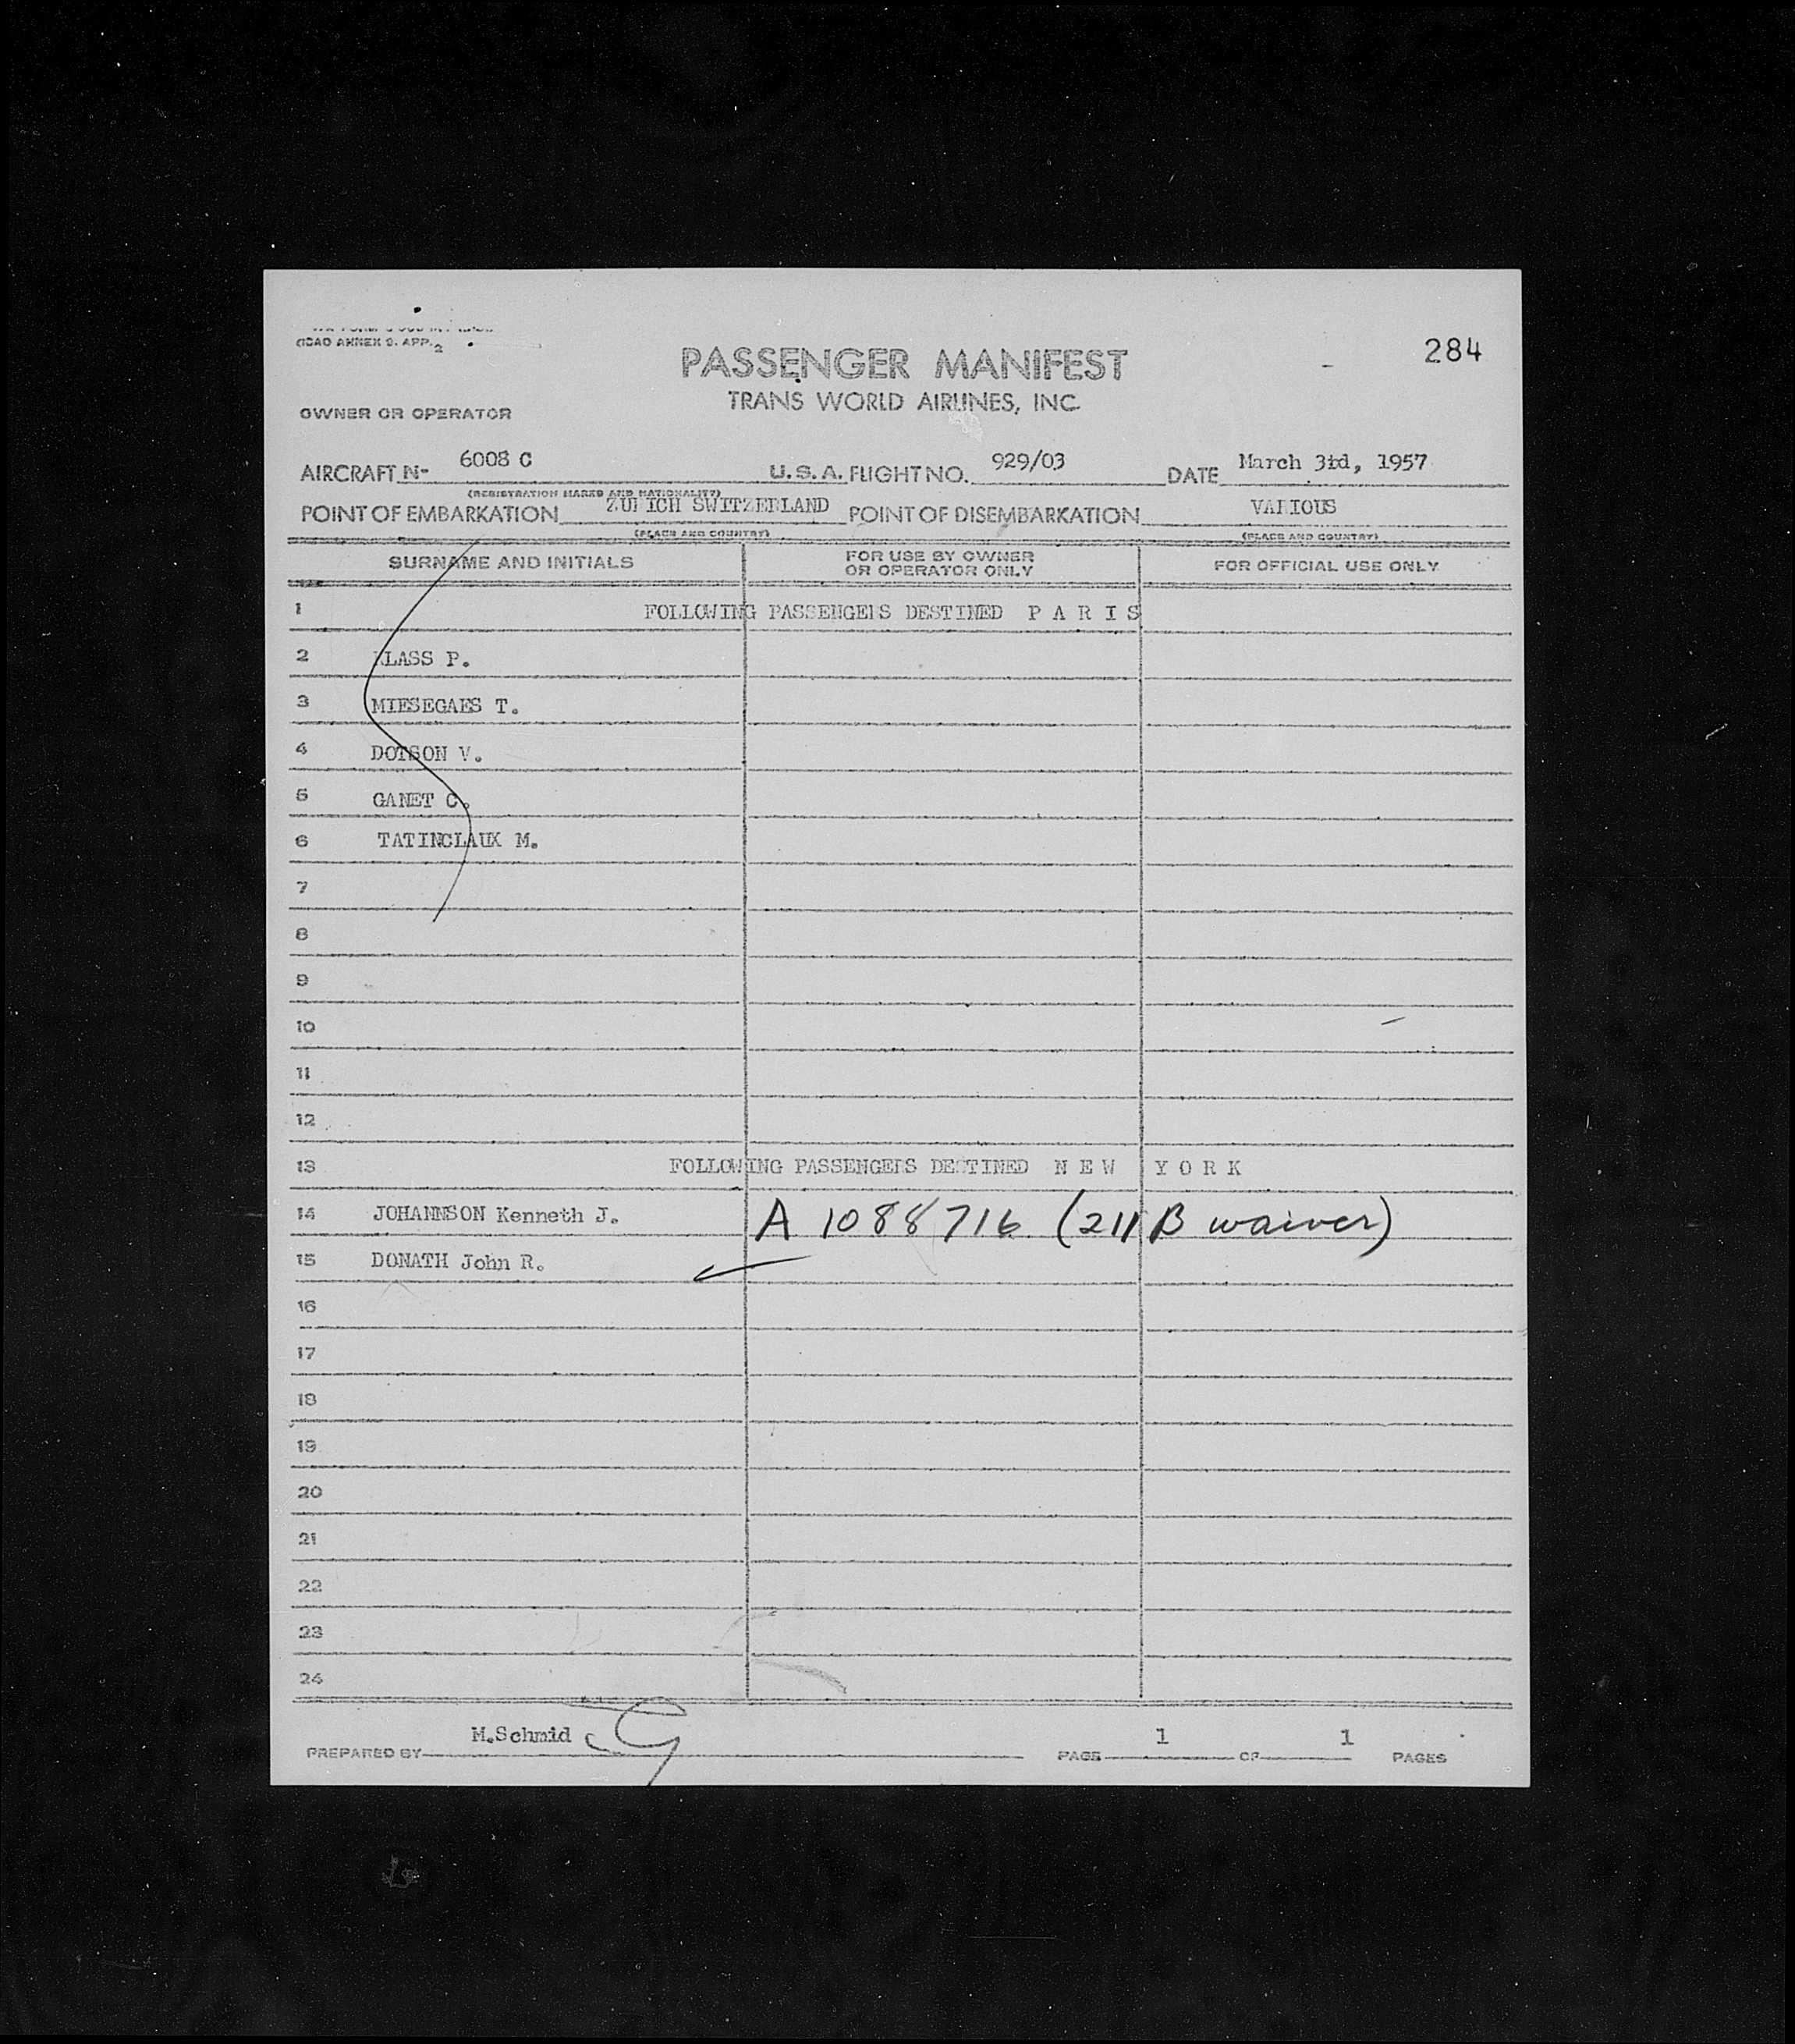 (ICAO ANNEX 9. APP. 2
284
PASSENGER MANIFEST
TRANS WORLD AIRLINES, INC.
OWNER OR OPERATOR
AIRCRAFT N- 6008 C U.S.A. FLIGHT NO. 929/03 DATE March 3rd, 1957
(REGISTRATION MARKS AND NATIONALITY)
POINT OF EMBARKATION ZURICH SWITZERLAND POINT OF DISEMBARKATION VARIOUS
(PLACE AND COUNTRY) (PLACE AND COUNTRY)
SURNAME AND INITIALS FOR USE BY OWNER OR OPERATOR ONLY FOR OFFICIAL USE ONLY
1 FOLLOWING PASSENGERS DESTINED P A R I S
2 KLASS P.
3 MIESEGAES T.
4 DOTSON V.
5 GANET C.
6 TATINCLAUX M.
7
8
9
10
11
12
13 FOLLOWING PASSENGERS DESTINED N E W Y O R K
14 JOHANNSON Kenneth J. A 1088716 (211 B waiver)
15 DONATH John R.
16
17
18
19
20
21
22
23
24
PREPARED BY M.Schmid PAGE 1 OF 1 PAGES